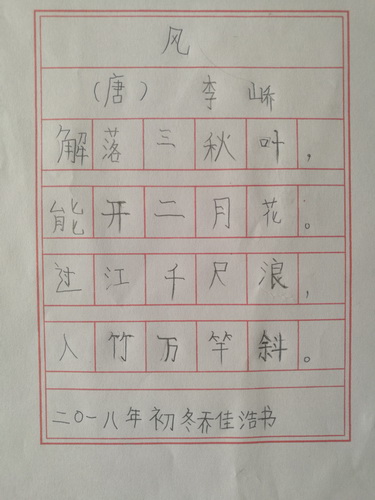 风
（唐） 李峤
解落三秋叶，
能开二月花。
过江千尺浪，
入竹万竿斜。
二〇一八年初冬乔佳浩书